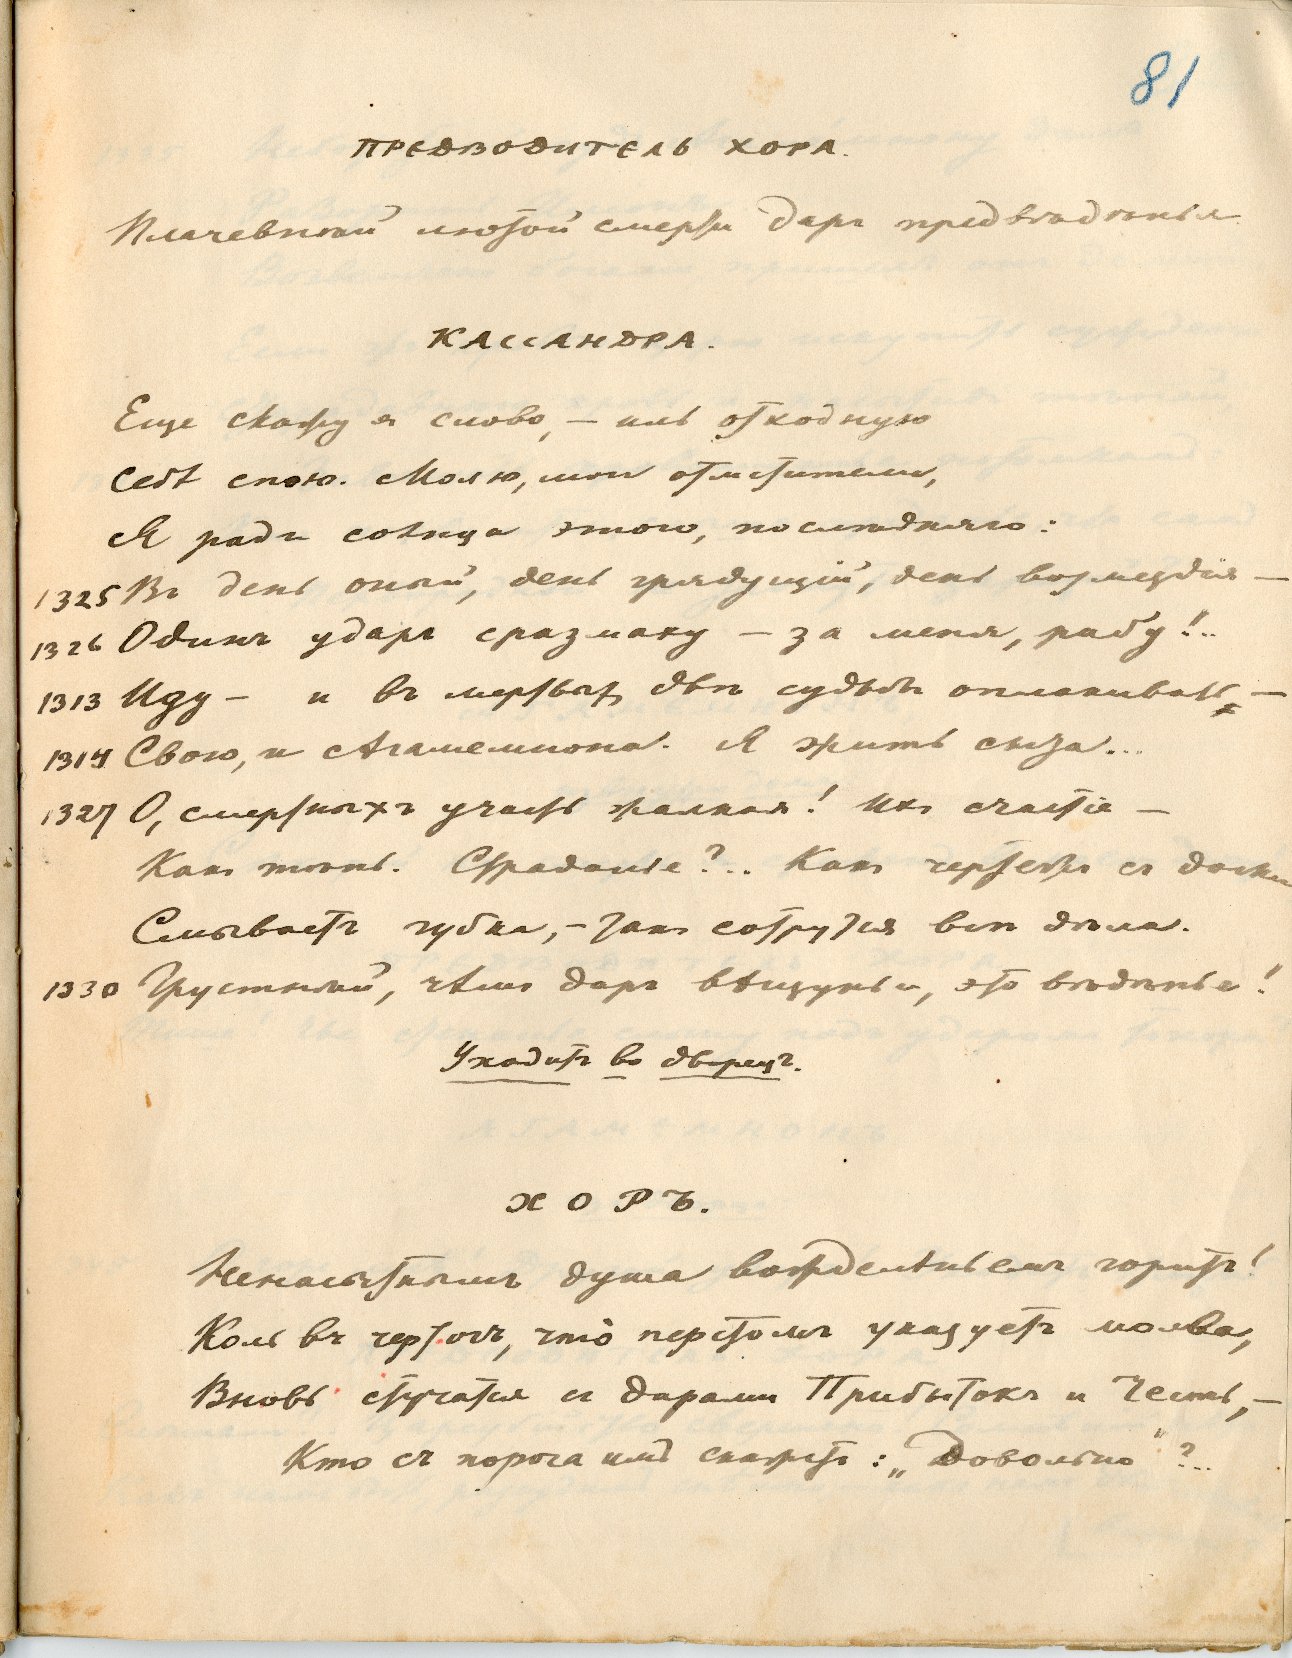 81
ПРЕДВОДИТЕЛЬ ХОРА.
Плачевный лютой смерти даръ предвѣдѣнья
КАССАНДРА.
Еще скажу я слово, – иль отходную
Себѣ спою. Молю, мои отмстители,
Я ради солнца этого, послѣдняго:
1325 Въ день оный, день грядущій, день возмездія —
1326 Одинъ ударъ сразмаху – за меня, рабу!..
1313 Иду – и въ мертвыхъ двѣ судьбы оплакивать, —
1314 Свою, и Агамемнона. Я жить сыта...
1327 О, смертныхъ участь жалкая! Ихъ счастіе —
Какъ тѣнь. Страданье?.. Какъ чертежъ съ доски
Смываетъ губка, – такъ сотрутся всѣ дѣла.
1330 Грустный, чѣмъ даръ вѣщуньи, это вѣдѣнье!
Уходитъ во дворецъ.
ХОРЪ.
Ненасытнымъ душа вожделѣньемъ горитъ!
Коль въ чертогъ, что̀ перстомъ указуетъ молва,
Вновь стучатся съ дарами Прибытокъ и Честь, —
Кто съ порога имъ скажетъ: „Довольно"?..